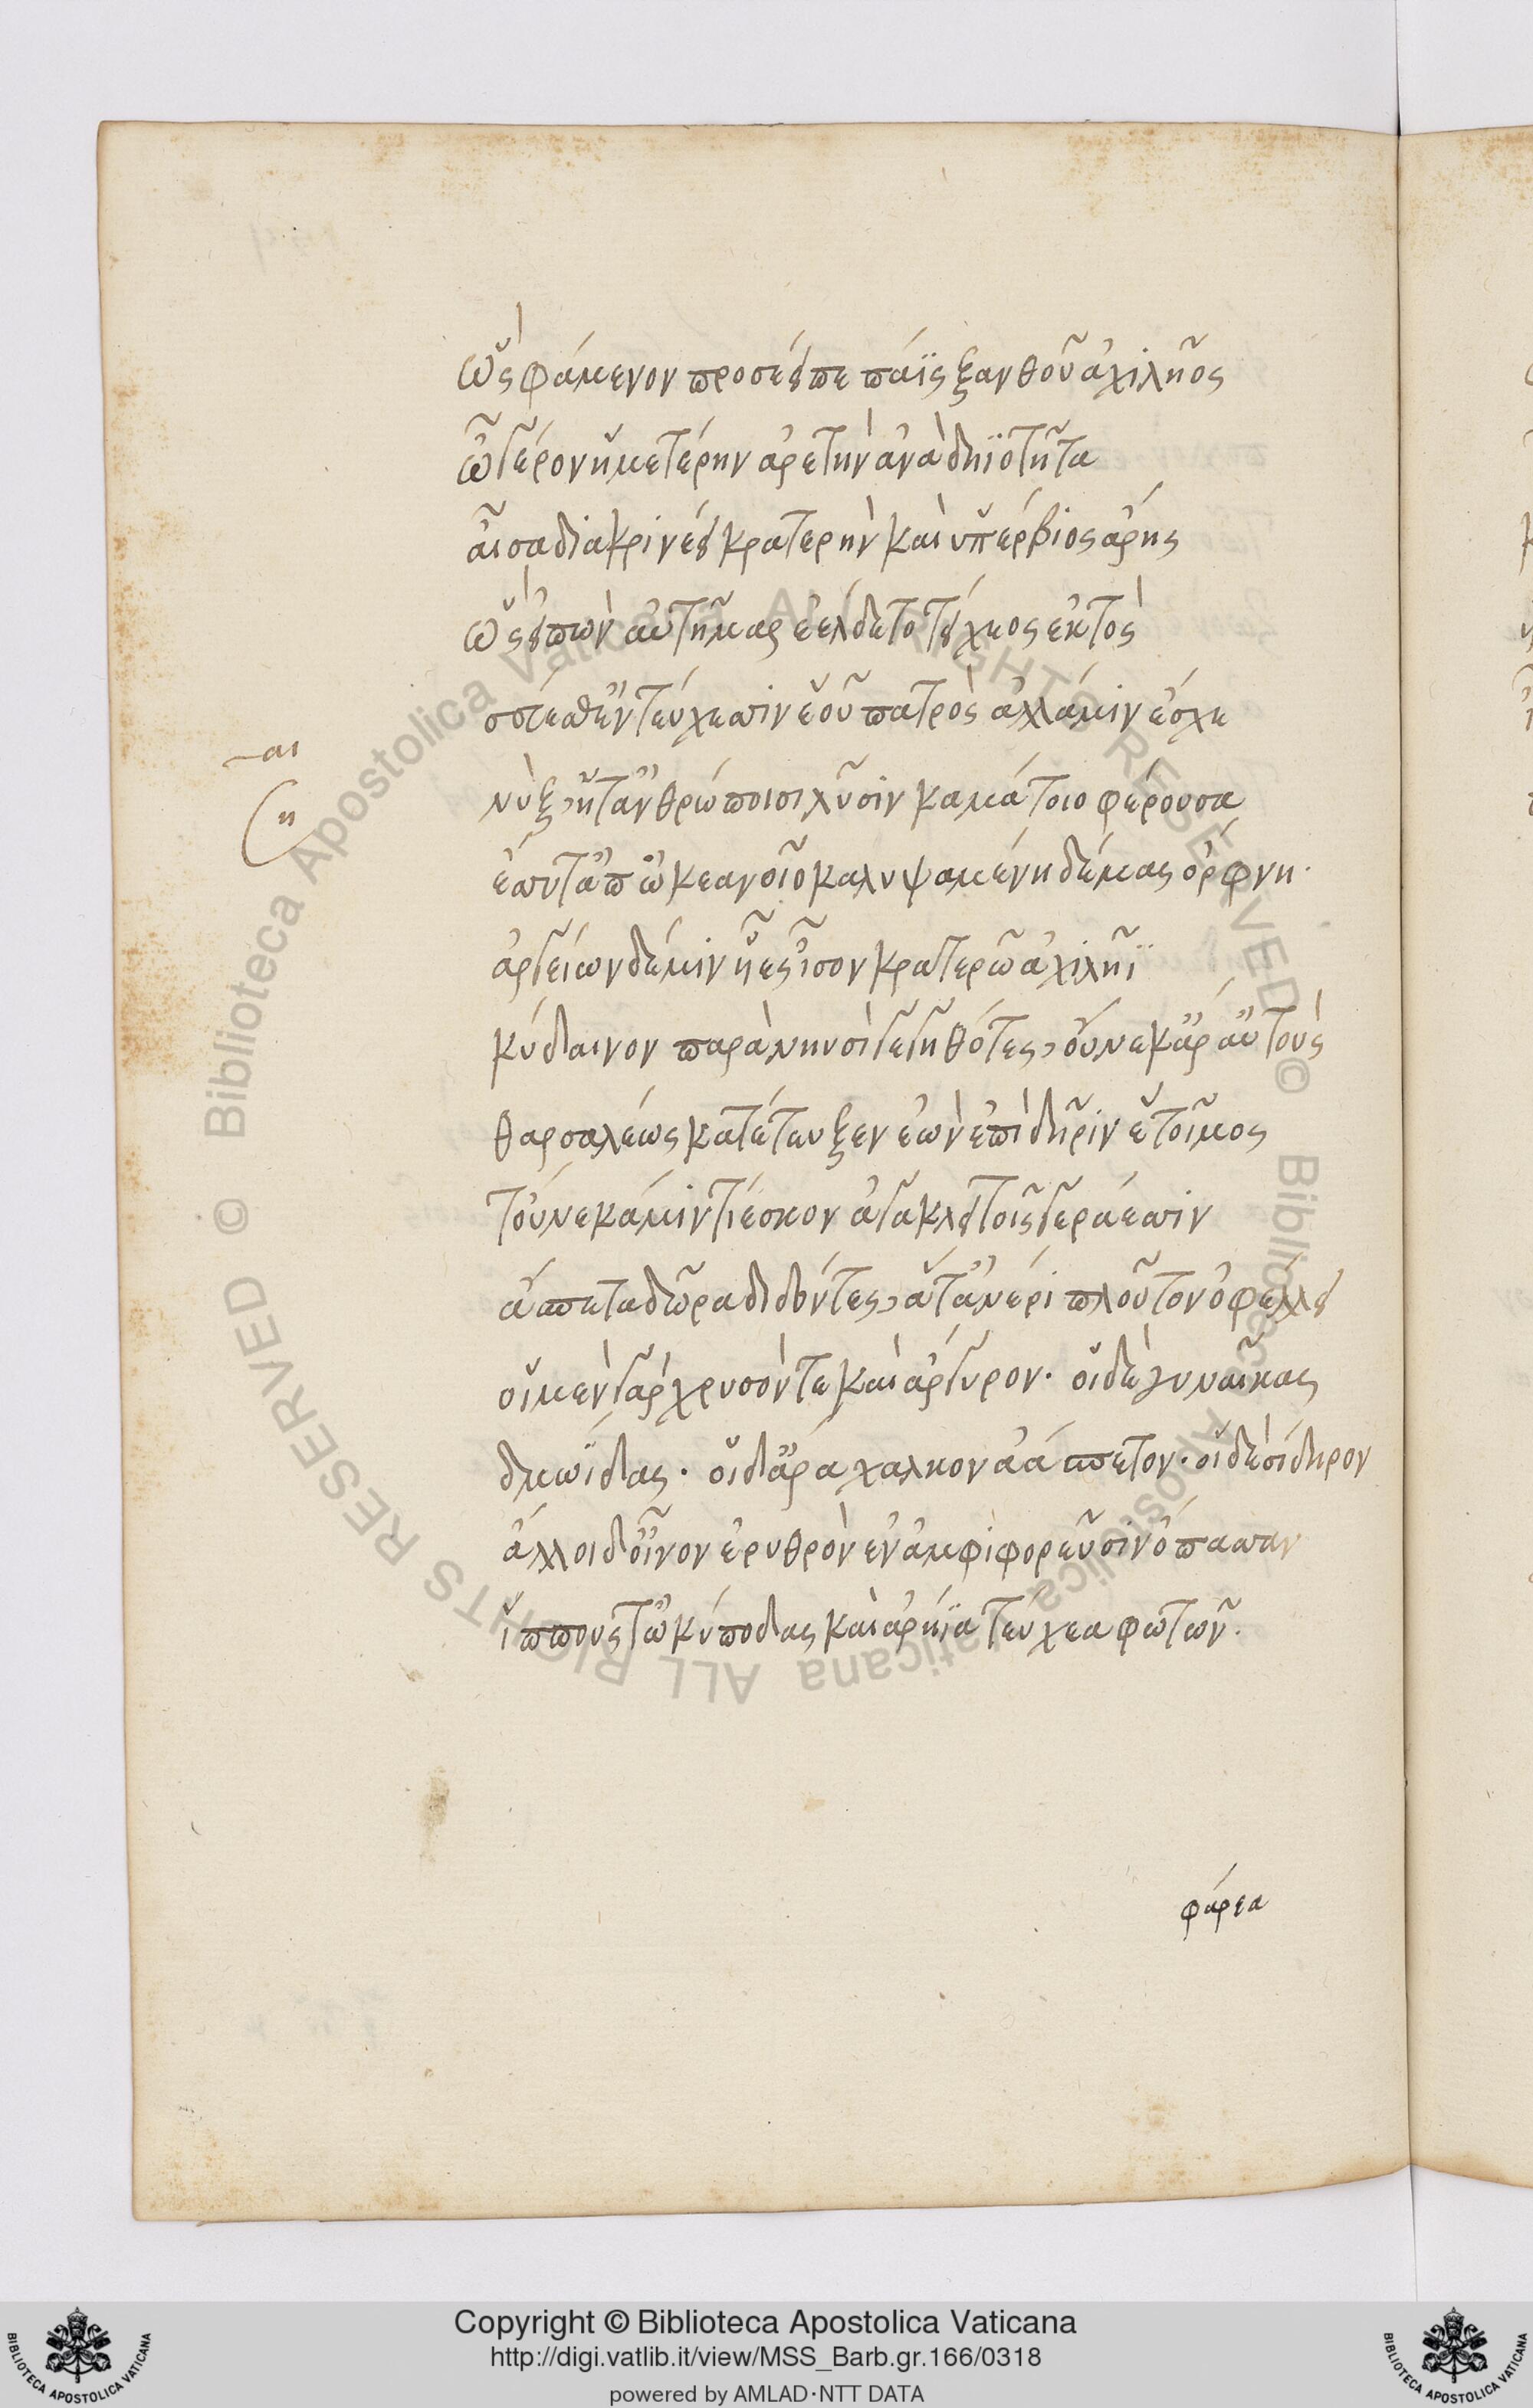 ὣς φάμενον προσέειπε πάϊς ξανθοῦ ἀχιλῆος
ὦ γέρον ἡμετέρην ἀρετὴν ἀνὰ δηϊοτῆτα
αἶσα διακρινέει κρατερὴ καὶ ὑπέρβιος ἄρης
ὣς εἰπὼν αὐτῆμαρ ἐέλδετο τείχεος ἐκτὸς
-αι
σεύεσθ' ἐν τεύχεσσιν ἑοῦ πατρὸς ἀλλά μιν ἔσχε
(η
νὺξ, ἥτ' ἀνθρώποισι λῦσιν καμάτοιο φέρουσα
ἔσσυτ' ἀπ' ὠκεανοῖο καλυψαμένη δέμας ὄρφνη.
ἀργείων δέ μιν υἷες ἶσον κρατερῷ ἀχιλῆϊ
κύδαινον παρὰ νηυσὶ γεγηθότες, οὕνεκ' ἄρ' αὐτοὺς
θαρσαλέως κατέτευξεν ἐὼν ἐπὶ δῆριν ἑτοῖμος
τοὔνεκά μιν τίεσκον ἀγακλειτοῖς γεράεσσιν
ἄσπετα δῶρα διδόντες, ἅτ' ἀνέρι πλοῦτον ὀφέλλει
οἱ μὲν γὰρ χρυσόν τε καὶ ἄργυρον. οἱ δὲ γυναῖκας
δμωίδας. οἱ δ' ἄρα χαλκὸν ἀάσπετον. οἱ δὲ σίδηρον
ἄλλοι δ' οἶνον ἐρυθρὸν ἐν ἀμφιφορεῦσιν ὄπασσαν
ἵππους τ' ὠκύποδας καὶ ἀρήϊα τεύχεα φωτῶν.
φάρεα
Copyright © Biblioteca Apostolica Vaticana
http://digi.vatlib.it/view/MSS_Barb.gr.166/0318
powered by AMLAD·NTT DATA
BIBLIOTECA APOSTOLICA VATICANA
BIBLIOTECA APOSTOLICA VATICANA
© Biblioteca Apostolica Vaticana ALL RIGHTS RESERVED © Biblioteca Apostolica Vaticana ALL RIGHTS RESERVED